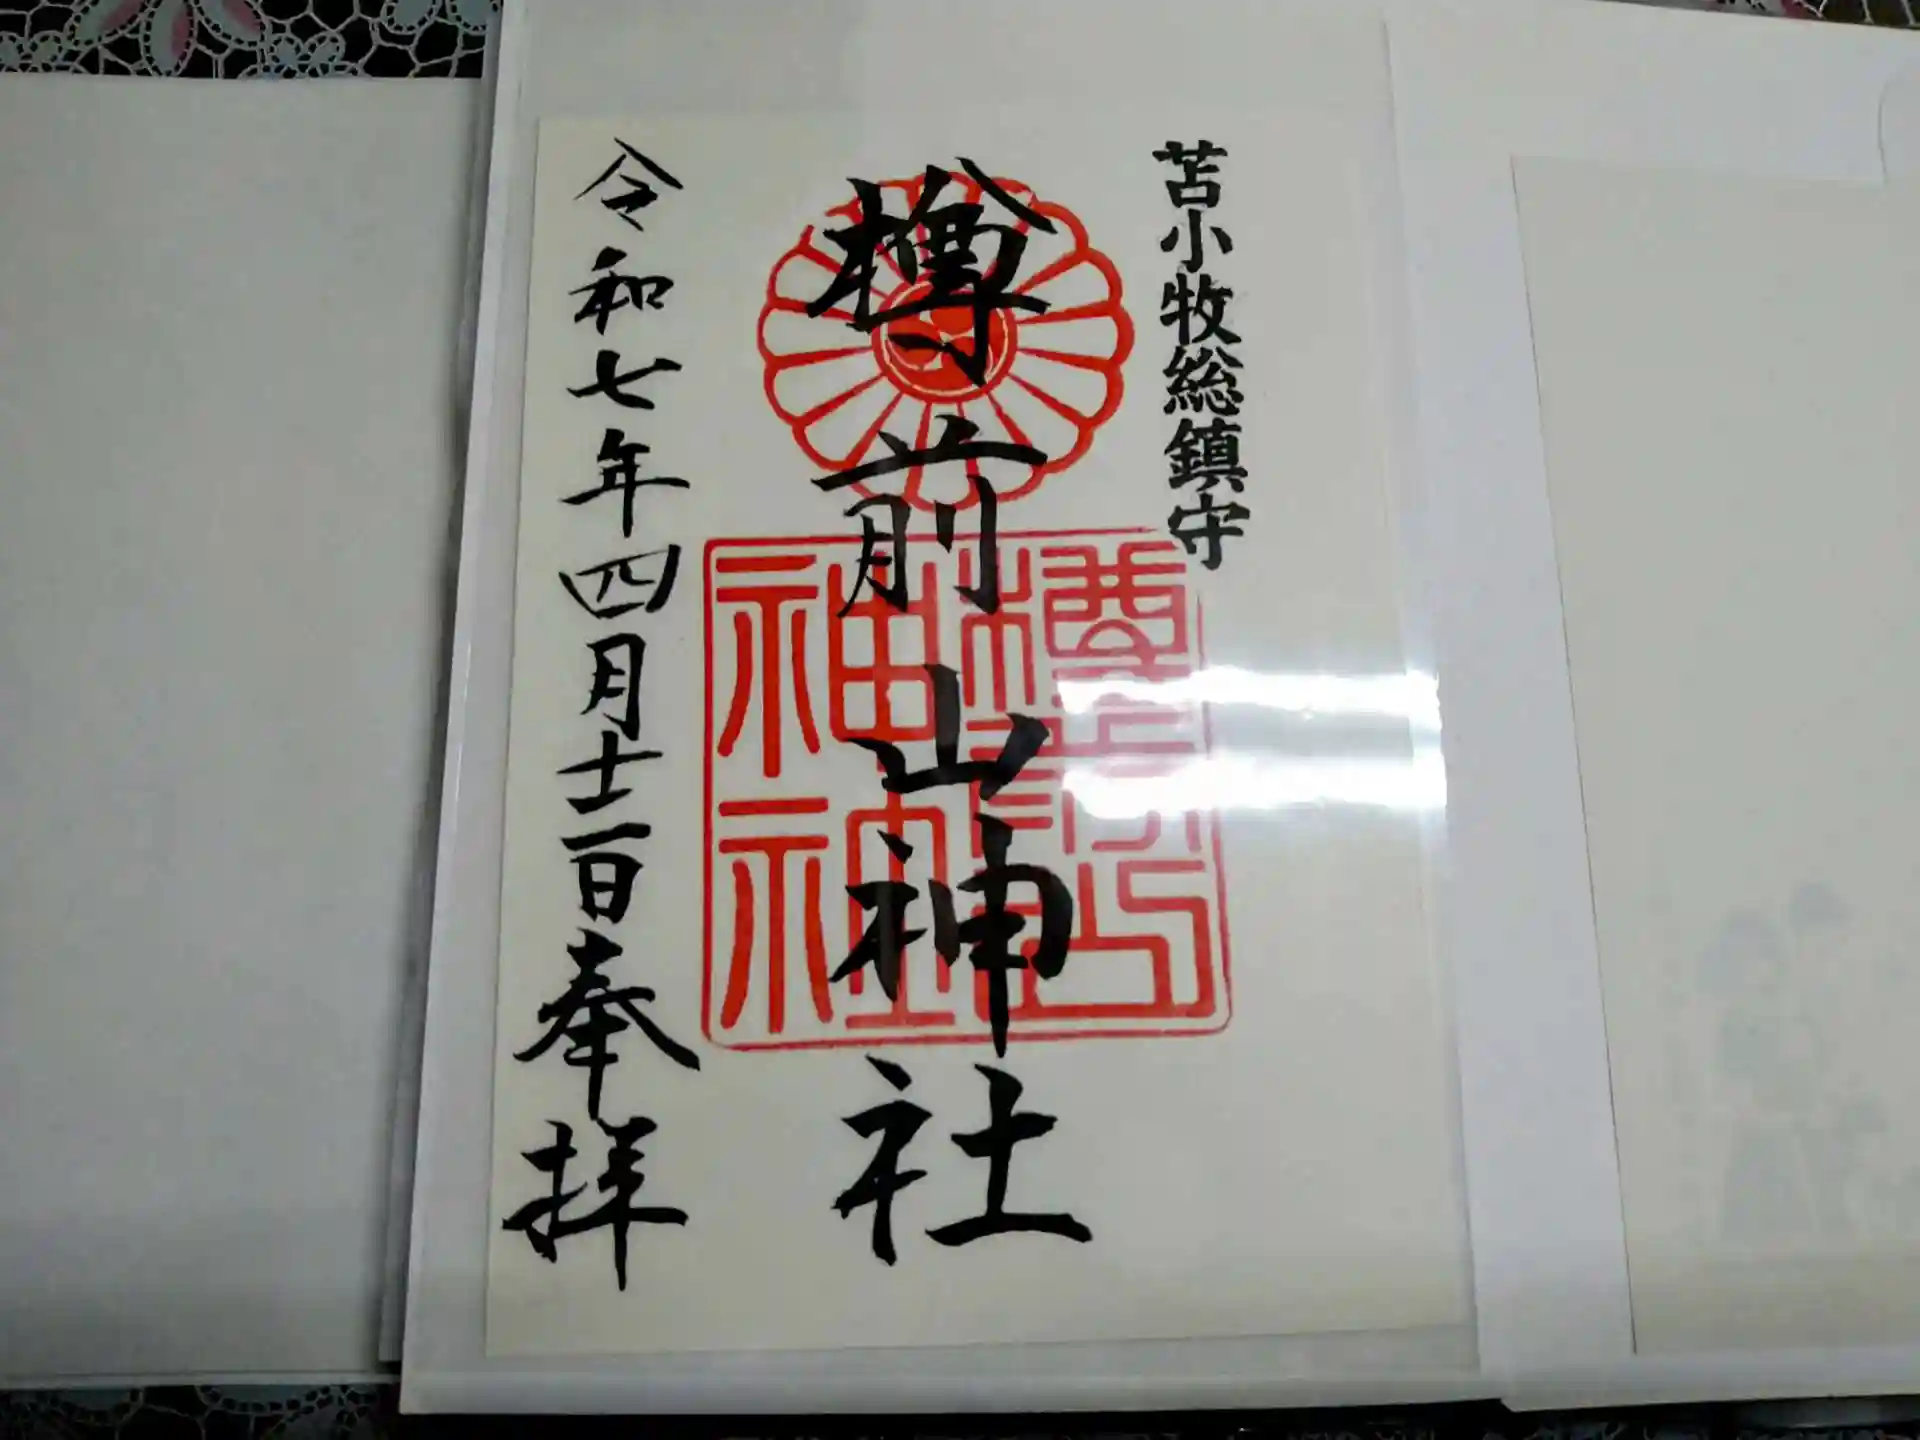 苫小牧総鎮守
樽前山神社
樽前山神社
令和七年四月十一日奉拝